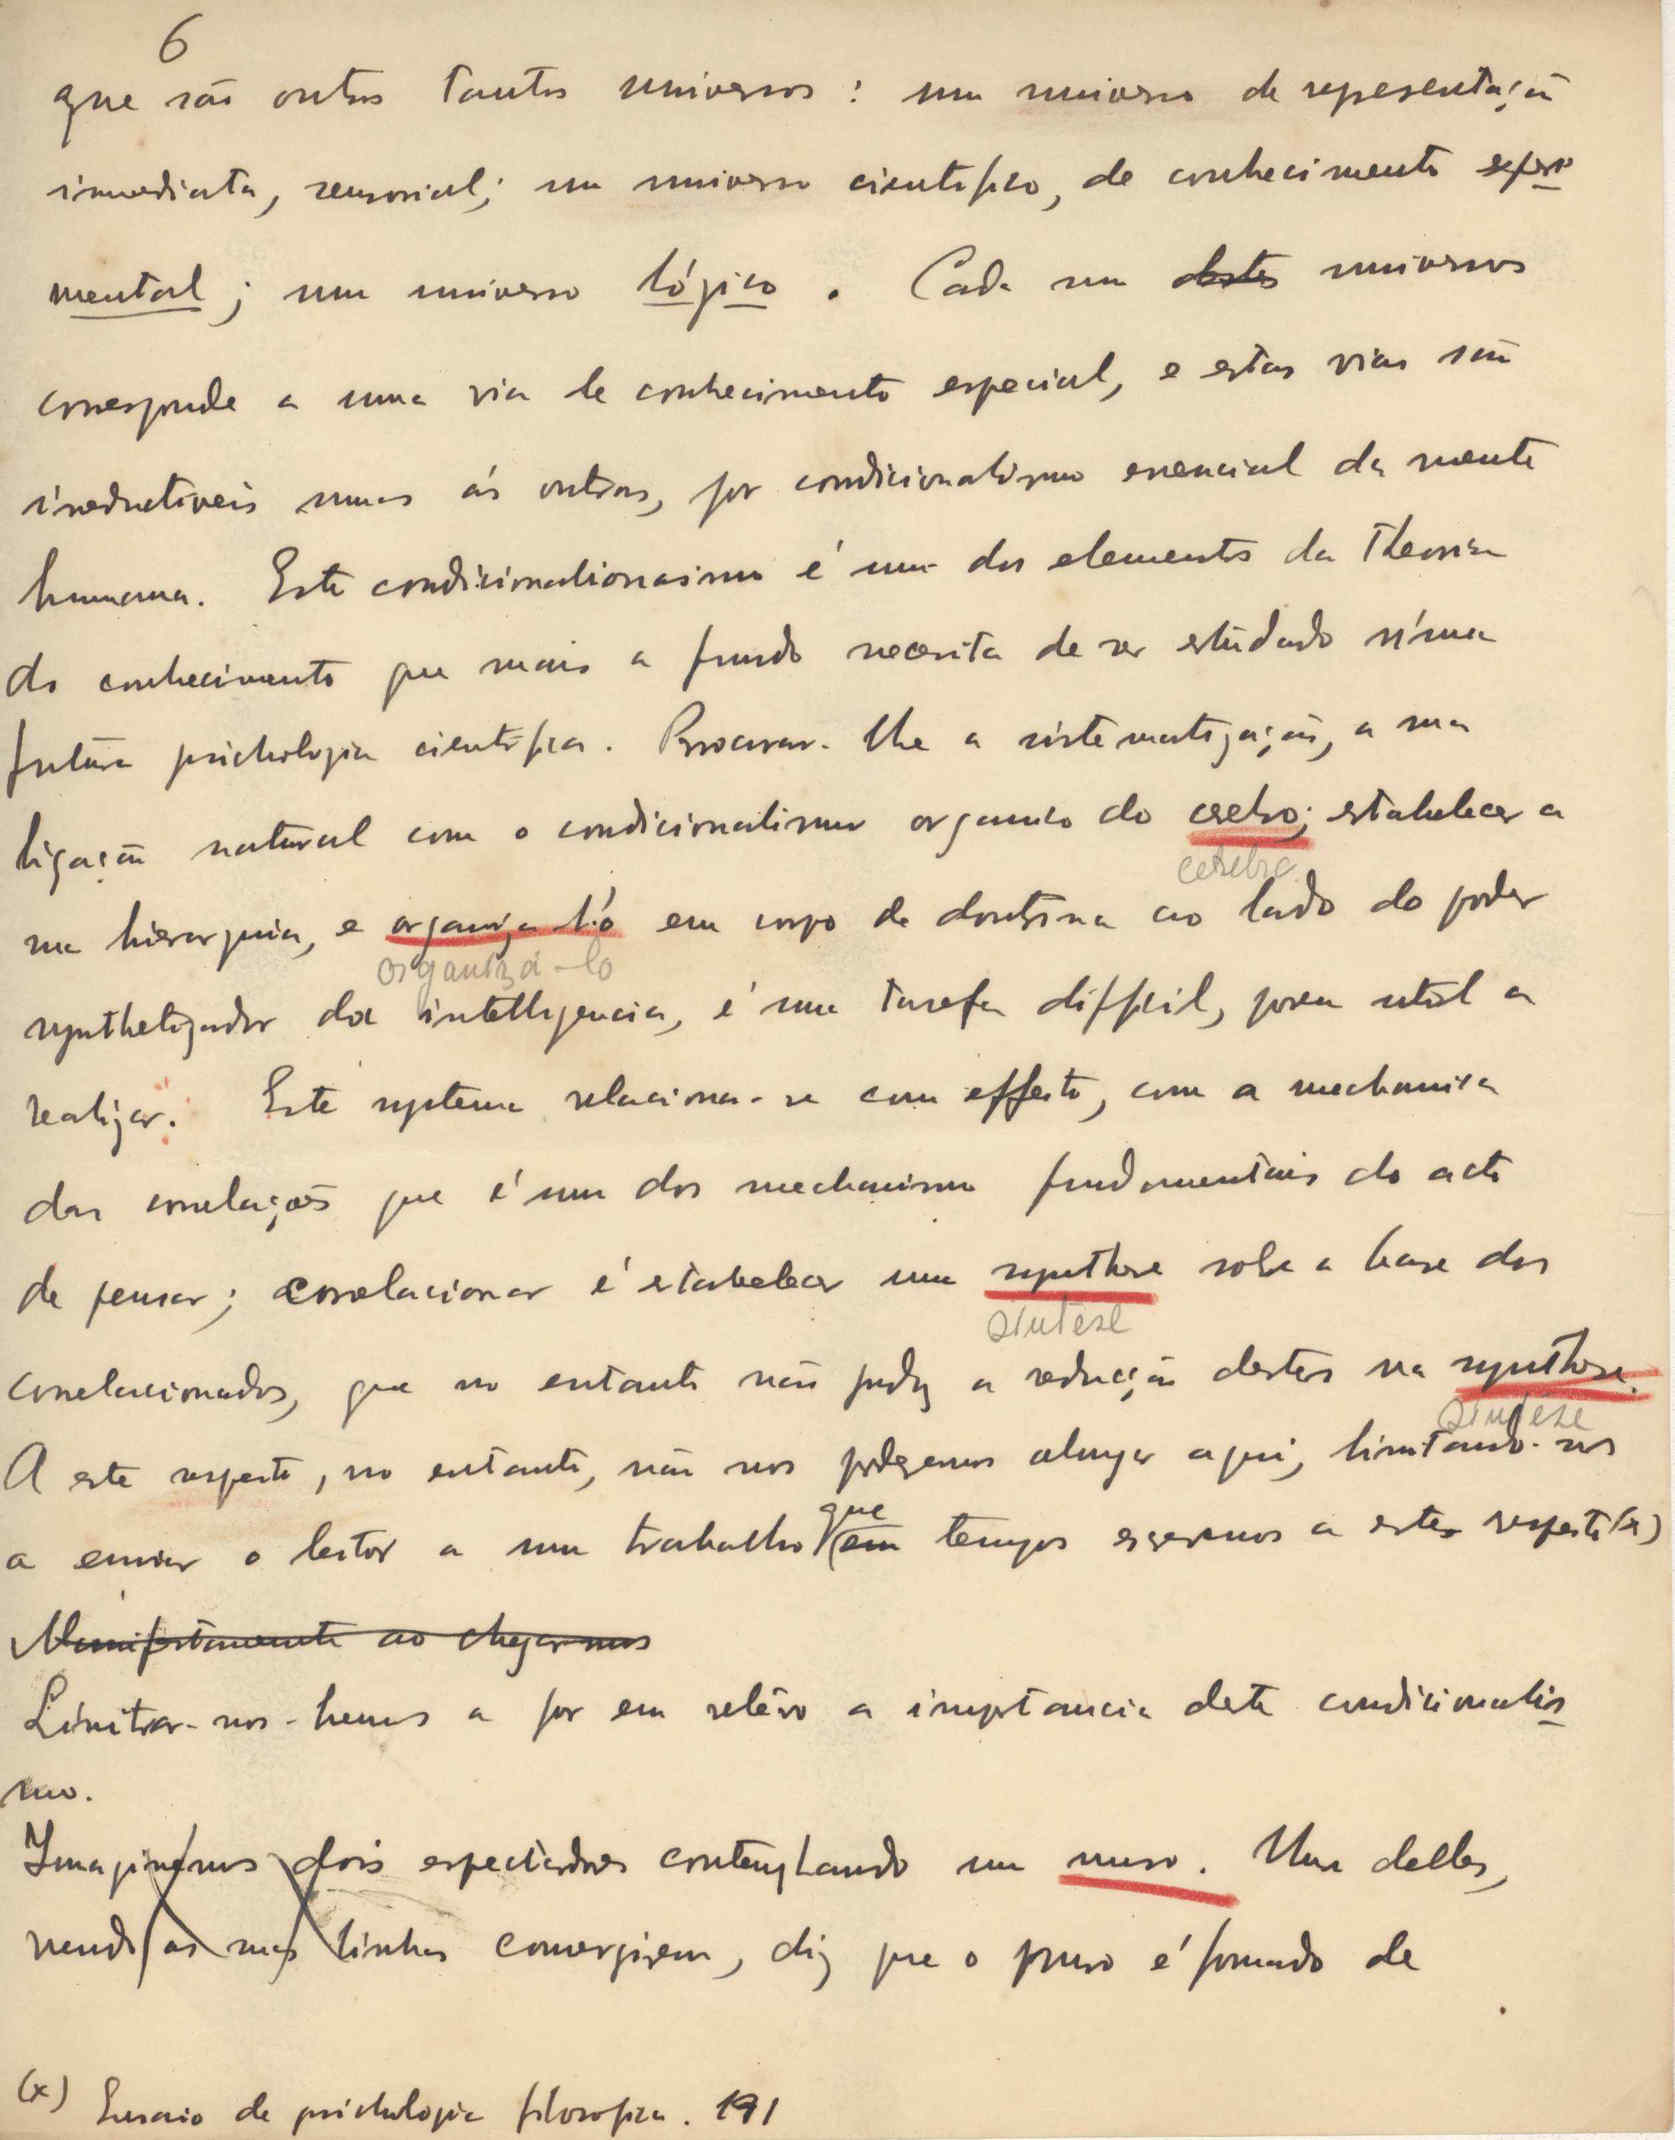 6
que são outros tantos universos : um universo de representação
immediata, sensorial; um universo cientifico, de conhecimento experi
mental ; um universo lógico . Cada um destes universos
corresponde a uma via de conhecimento especial, e estas vias são
irreductiveis umas ás outras, por condicionalismo essencial da mente
humana. Este é um dos elementos da theoria
do conhecimento que mais a fundo necessita de ser estudado n'uma
futura psichologia cientifica. Procurar-lhe a sistematização, a sua
ligação natural com o condicionalismo organico do cerebro; estabelecer a
cerebro
sua hierarquia, e organiza-l'o em corpo de doutrina ao lado do poder
organizá-lo
synthetizador da intelligencia, é uma tarefa difficil, porem util a
realizar. Este systema relaciona-se com effeito, com a mechanica
das correlações que é um dos mechanismo fundamentais do acto
de pensar; correlacionar é estabelecer uma synthese sobre a base dos
síntese
correlacionados, que no entanto não produz a redução destes na synthese.
síntese
A este respeito, no entanto, não nos podemos alongar aqui, limitando-nos
que
a enviar o leitor a um trabalho em tempos escrevemos a este respeito (x)
Manifestamente ao chegarmos
Limitar-nos-hemos a por em relêvo a importancia deste condicionalis
mo.
Imaginemos dois espectadores contemplando um muro. Um delles,
vendo as suas linhas convergirem, diz que o muro é formado de
(x) Ensaio de psichologia filosofica. 191